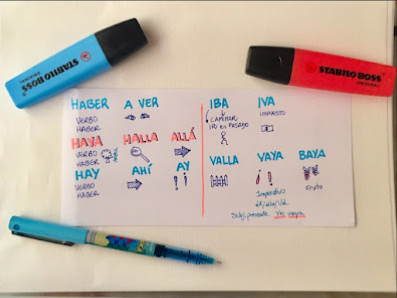 STABILO BOSS
STABILO BOSS
HABER A VER
VERBO
HABER
HAYA HALLA ALLÁ
VERBO
HABER
HAY AHÍ AY
VERBO
HABER
IBA IVA
CAMINAR IMPUESTO
IR en PASADO
VALLA VAYA BAYA
Imperativo Fruto
Subj. presente Yo vaya